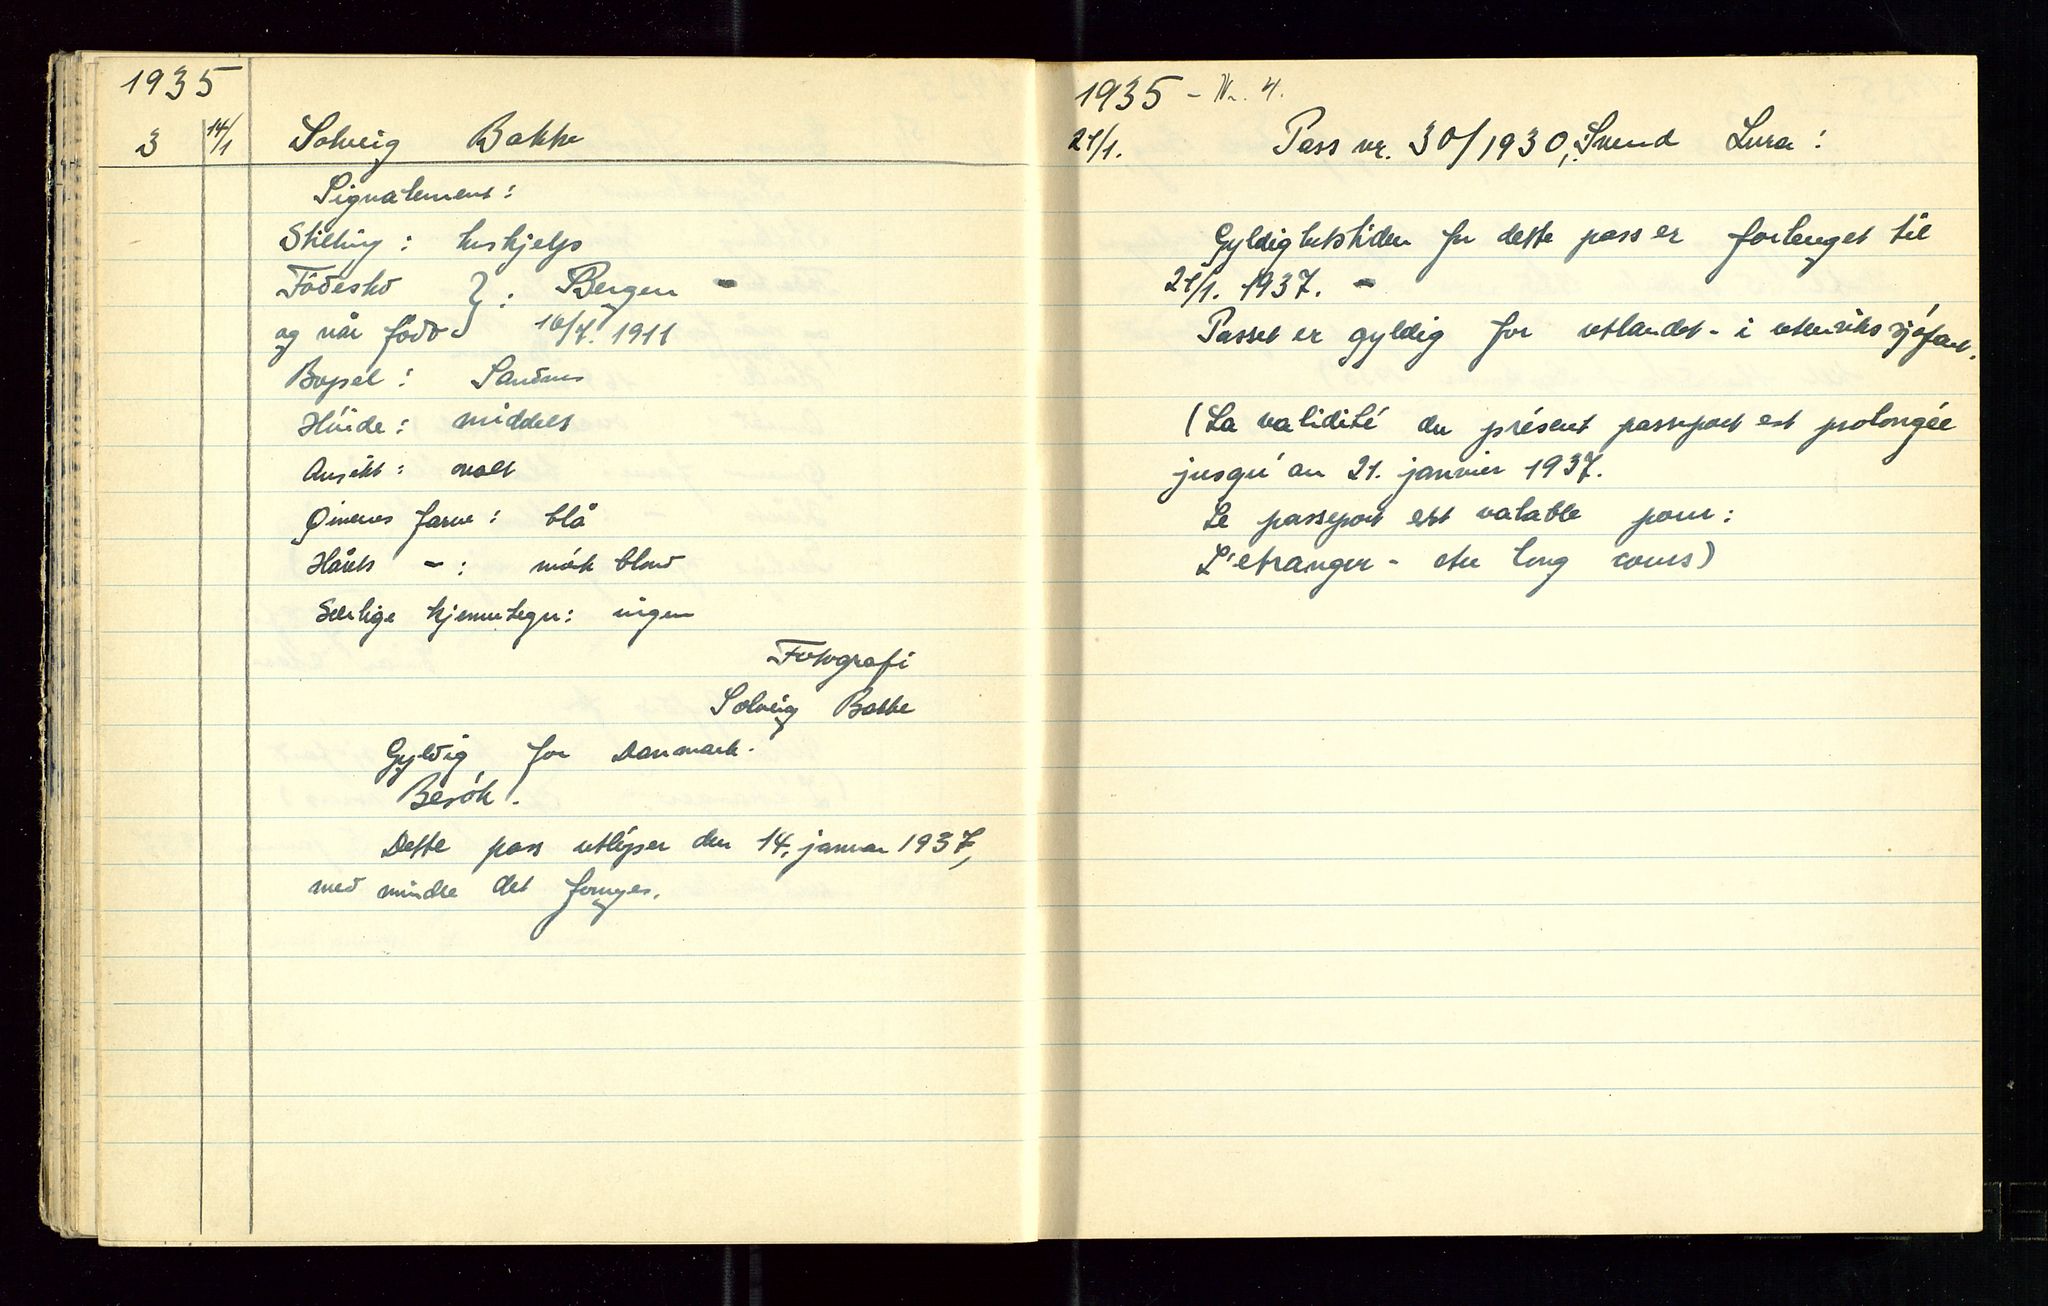 1935
3 14/1 Solveig Bakke
Signalement:
Stilling: hushjelp
Fødested } : Bergen -
og når født 16/4. 1911
Bopel: Sandnes
Høide: middels
Ansikt: ovalt
Øinenes farve: blå
Hårets - : mörk blond
Særlige kjennetegn: ingen
Fotografi
Solveig Bakke
Gyldig for Danmark.
Besök.
Dette pass utlöper den 14. januar 1937,
med mindre det fornyes.
1935 - Nr. 4.
21/1. Pass nr. 30/1930, Svend Lura:
Gyldighetstiden for dette pass er forlenget til
21/1. 1937. -
Passet er gyldig for utlandet - i utenriks sjöfart.
(La validité du présent passeport est prolongée
jusqu'au 21. janvier 1937.
Le passeport est valable pour:
L'etranger - au long cours)